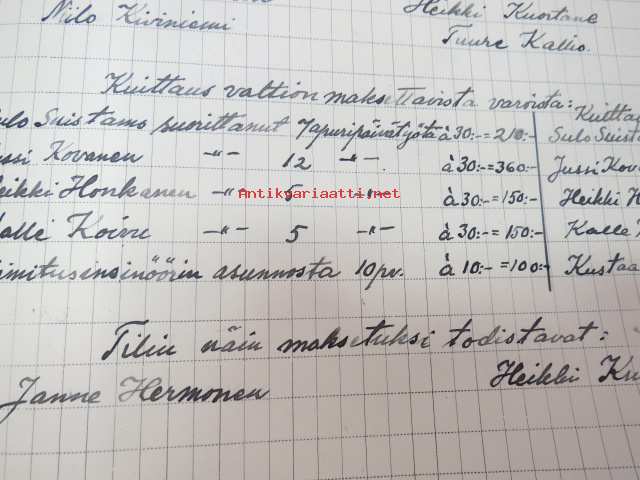 Nilo Kiviniemi Heikki Kuortane
Tuure Kallio.
Kuittaus valtion maksettavista varoista: Kuittau
ulo Suistamo suorittanut 7 apuripäivätyötä à 30:- = 210:- Sulo Suista
ussi Kovanen -"- 12 -"- à 30:- = 360:- Jussi Kova
eikki Honkanen -"- 5 -"- à 30:- = 150:- Heikki H
alle Koivu -"- 5 -"- à 30:- = 150:- Kalle K
imitusinsinöörin asunnosta 10 pv. à 10:- = 100:- Kustaa
Antikvariaatti.net
Tilin näin maksetuksi todistavat:
Janne Hermonen Heikki Ku